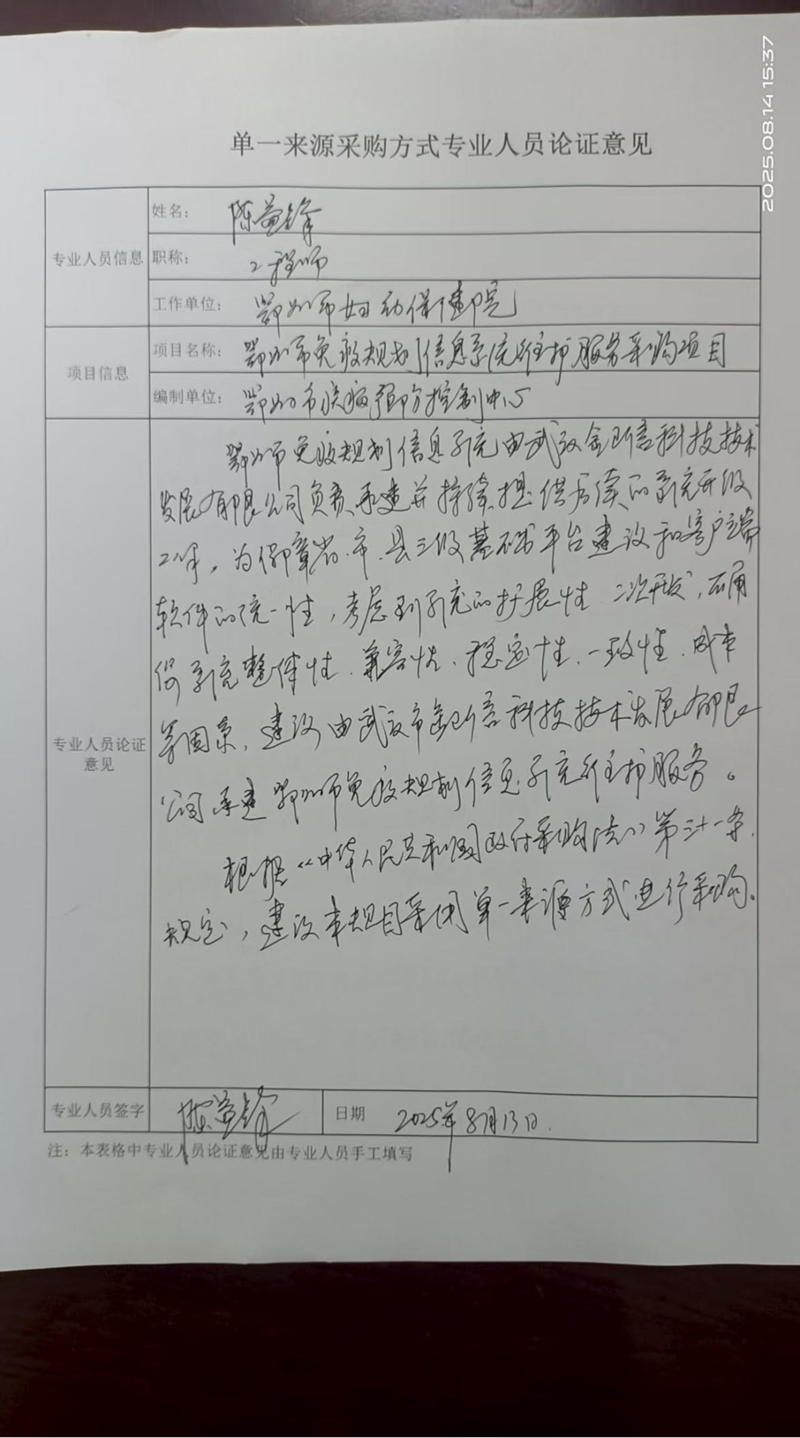 2025.08.14 15:37
单一来源采购方式专业人员论证意见
专业人员信息
姓名：陈益锋
职称：工程师
工作单位：鄂州市妇幼保健院
项目信息
项目名称：鄂州市免疫规划信息系统维护服务采购项目
编制单位：鄂州市疾病预防控制中心
专业人员论证意见
鄂州市免疫规划信息系统由武汉金卫信科技技术
发展有限公司负责承建并持续提供后续的系统升级
工作，为保障省、市、县三级基础平台建设和客户端
软件的统一性，考虑到系统的扩展性、二次开发，确
保系统整体性、兼容性、稳定性、一致性、成本
等因素，建议由武汉市金卫信科技技术发展有限
公司承建鄂州市免疫规划信息系统维护服务。
根据《中华人民共和国政府采购法》第三十一条
规定，建议本项目采用单一来源方式进行采购。
专业人员签字 陈益锋 日期 2025年8月13日.
注：本表格中专业人员论证意见由专业人员手工填写